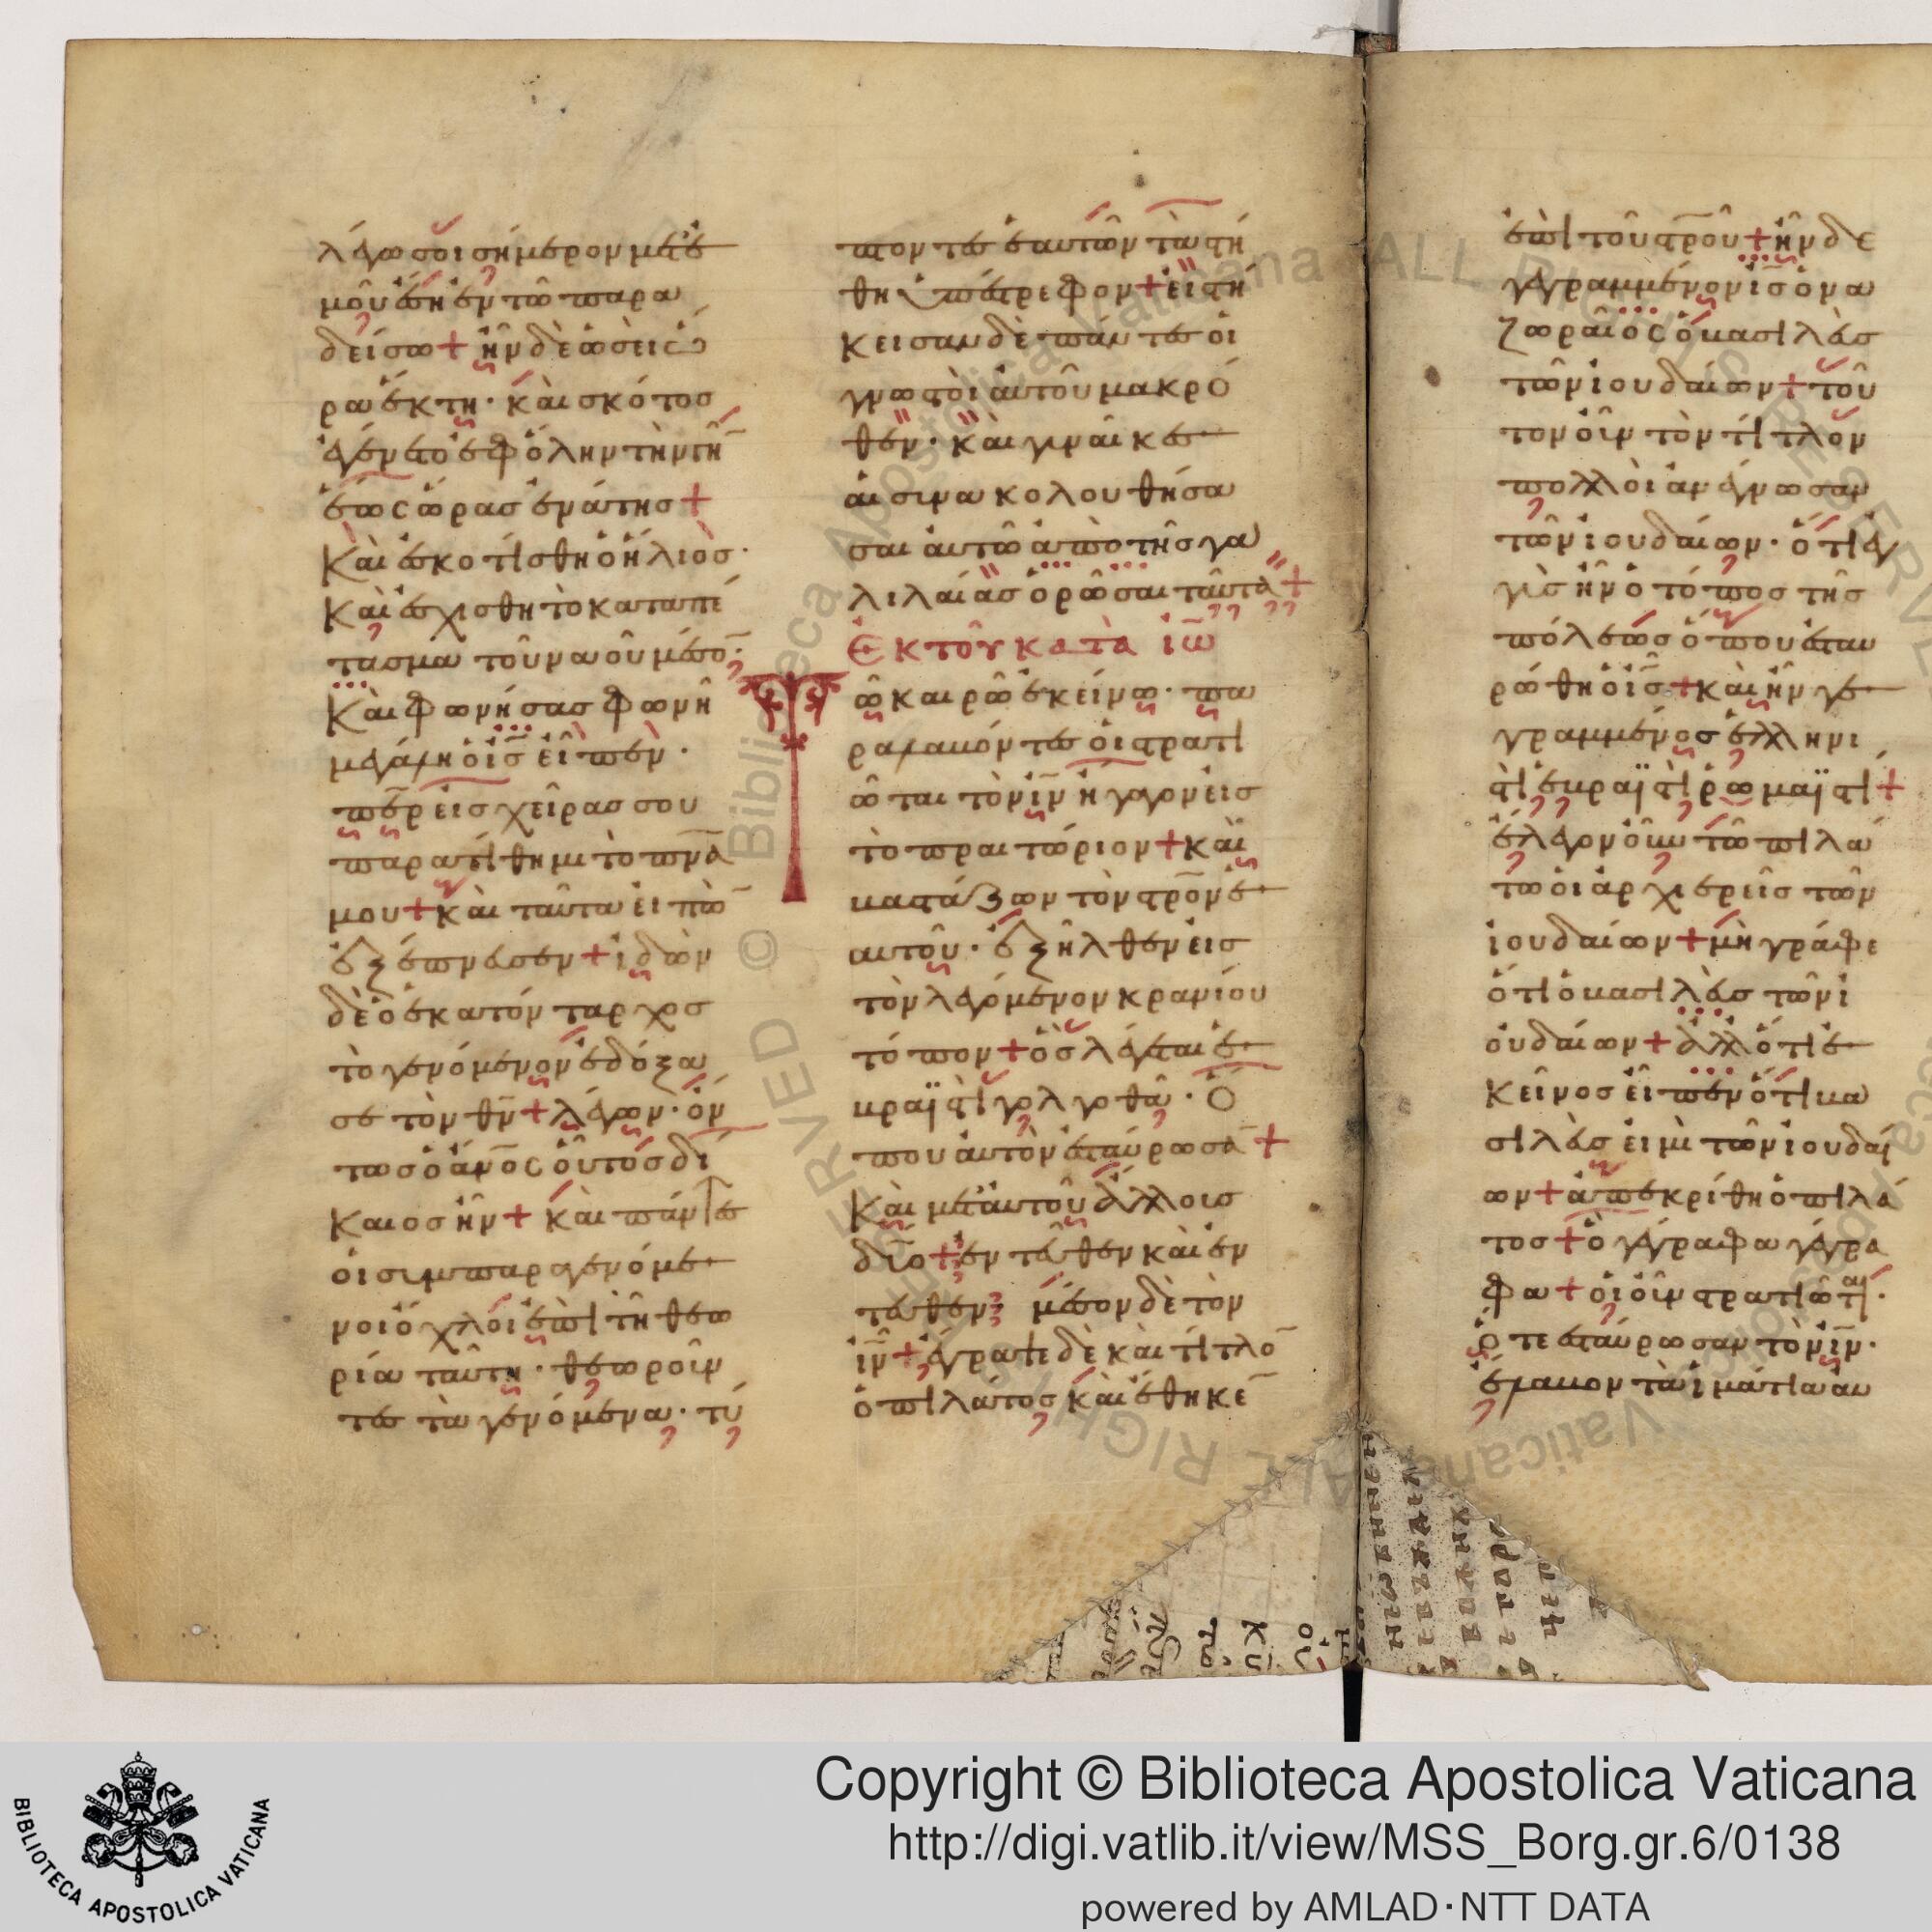 λέγω σοι σήμερον μετ' ἐ
μοῦ ἔση ἐν τῶ παρα
δείσω + ἦν δὲ ὡσεὶ ὥ
ρα ἕκτη· καὶ σκότοσ
ἐγένετο ἐφ ὅλην τὴν γῆ̅
ἕωσ ὥρασ ἐνάτησ +
Καὶ ἐσκοτίσθη ὁ ἥλιοσ·
Καὶ ἐσχίσθη τὸ καταπέ
τασμα τοῦ ναοῦ μέσο̅·
Καὶ φωνήσασ φωνῆ
μεγάλη ὁ ι̅σ̅ εἶπεν·
π̅ε̅ρ̅ εἰσ χεῖρασ σου
παρατίθημι τὸ π̅ν̅α̅
μου + καὶ ταῦτα εἰπὼ̅
ἐξέπνευσεν + ἰδὼν
δὲ ὁ ἑκατόνταρχοσ
τὸ γενόμενον ἐδόξα
σε τὸν θ̅ν̅ + λέγων· ὄν
τωσ ὁ α̅ν̅ο̅σ οὗτοσ δί
καιοσ ἦν + καὶ πάντεσ
οἱ συμπαραγενόμε
νοι ὄχλοι ἐπὶ τὴ θεω
ρία ταύτη· θεωροῦν
τεσ τὰ γενόμενα· τύ
πτοντεσ ἑαυτῶν τὰ στή
θη ὑπέστρεφον + εἱστή
κεισαν δὲ πάντεσ οἱ
γνωστοὶ αὐτοῦ μακρό
θεν· καὶ γυναῖκεσ
αἱ συνακολουθήσα
σαι αὐτῶ ἀπὸ τῆσ γα
λιλαίασ ὁρῶσαι ταῦτα +
Ἐκ τοῦ κατὰ ἰω
Τῶ καιρῶ ἐκείνω· πα
ραλαβόντεσ οἱ στρατι
ῶται τὸν ι̅ν̅ ἤγαγον εἰσ
τὸ πραιτώριον + καὶ
βαστάζων τὸν σ̅ρ̅ο̅ν ἑ
αυτοῦ· ἐξῆλθεν εἰσ
τὸν λεγόμενον κρανίου
τόπον + ὃσ λέγεται ἑ
βραϊστὶ γολγοθᾶ· Ὅ
που αὐτὸν ἐσταύρωσα̅ +
Καὶ μετ' αὐτοῦ ἄλλουσ
δύο + ἐντεῦθεν καὶ ἐν
τεῦθεν μέσον δὲ τὸν
ι̅ν̅ + ἔγραψε δὲ καὶ τίτλο̅
ὁ πιλάτοσ καὶ ἔθηκε̅
ἐπὶ τοῦ σ̅ρ̅ο̅υ + ἦν δὲ
γεγραμμένον ι̅σ̅ ὁ να
ζωραῖοσ ὁ βασιλεὺσ
τῶν ἰουδαίων + τοῦ
τον οὖν τὸν τίτλον
πολλοὶ ἀνέγνωσαν
τῶν ἰουδαίων· ὅτι ἐγ
γὺσ ἦν ὁ τόποσ τῆσ
πόλεωσ ὅπου ἐσταυ
ρώθη ὁ ι̅σ̅ + καὶ ἦν γε
γραμμένοσ ἑλληνι
στὶ ἑβραϊστὶ ῥωμαϊστὶ +
ἔλεγον οὖν τῶ πιλά
τω οἱ ἀρχιερεῖσ τῶν
ἰουδαίων + μὴ γράφε
ὅτι ὁ βασιλεὺσ τῶν ἰ
ουδαίων + ἀλλ ὅτι ἐ
κεῖνοσ εἶπεν ὅτι βα
σιλεύσ εἰμι τῶν ἰουδαί
ων + ἀπεκρίθη ὁ πιλά
τοσ + ὃ γέγραφα γέγρα
φα + οἱ οὖν στρατιῶται·
Ὅτε ἐσταύρωσαν τὸν ι̅ν̅·
ἔλαβον τὰ ἱμάτια αὐ
Copyright © Biblioteca Apostolica Vaticana
http://digi.vatlib.it/view/MSS_Borg.gr.6/0138
powered by AMLAD·NTT DATA
BIBLIOTECA APOSTOLICA VATICANA